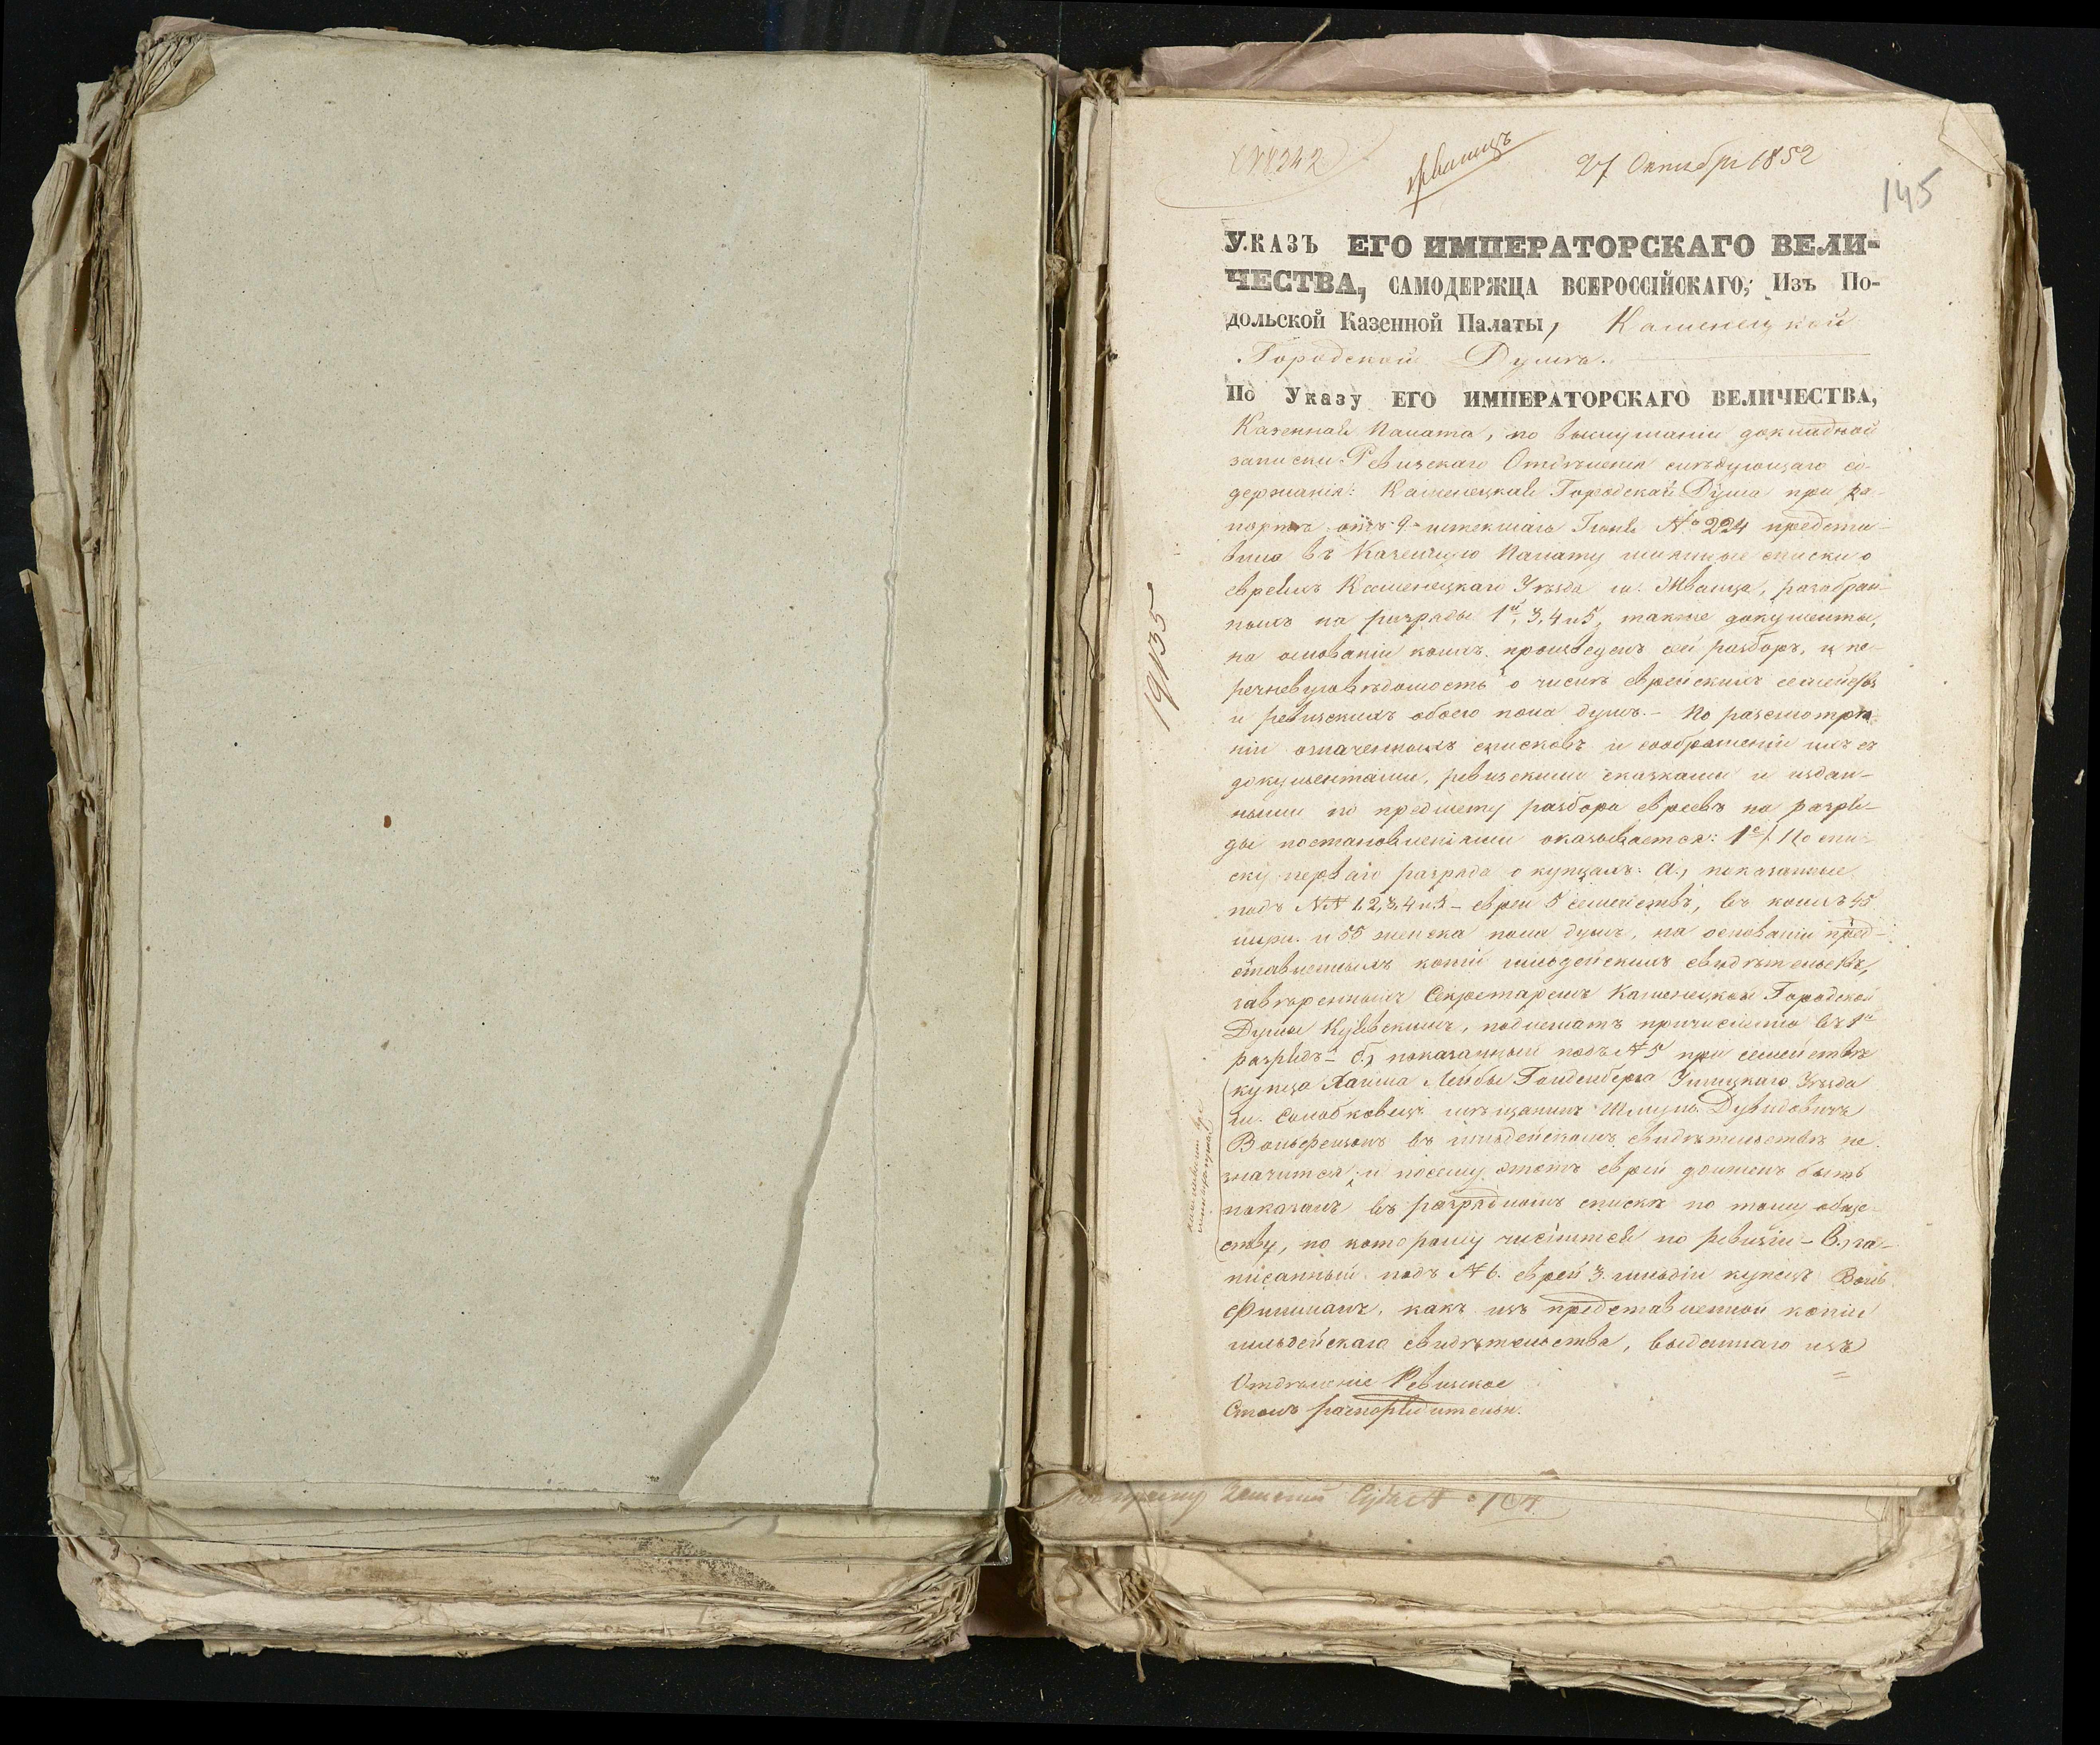 № 8242
Жванецъ
27 Октября 1852
145
УКАЗЪ ЕГО ИМПЕРАТОРСКАГО ВЕЛИ-
ЧЕСТВА, САМОДЕРЖЦА ВСЕРОССІЙСКАГО, Изъ По-
дольской Казенной Палаты, Каменецкой
Городской Думѣ.
По Указу ЕГО ИМПЕРАТОРСКАГО ВЕЛИЧЕСТВА,
Казенная Палата, по выслушаніи докладной
записки Ревизскаго Отдѣленія слѣдующаго со-
держанія: Каменецкая Городская Дума при ра-
портѣ отъ 9 истекшаго Іюня № 224 предста-
вила въ Казенную Палату именные списки о
евреяхъ Каменецкаго Уѣзда м. Жванца, разобран-
ныхъ на разряды 1й, 3, 4 и 5, также документы,
на основаніи коихъ произведенъ сей разборъ, и пе-
речневую вѣдомость о числѣ еврейскихъ семействъ
и ревизскихъ обоего пола душъ. – По разсмотрѣ-
ніи означенныхъ списковъ и соображеніи ихъ съ
документами, ревизскими сказками и издан-
ными по предмету разбора евреевъ на разря-
ды постановленіями оказывается: 1е) По спи-
ску перваго разряда о купцахъ: а., показанные
подъ №№ 1, 2, 3, 4 и 5 – евреи 5 семействъ, въ коихъ 45
мужс. и 55 женска пола душъ, на основаніи пред-
ставленныхъ копій гильдейскихъ свидѣтельствъ,
завѣренныхъ Секретаремъ Каменецкой Городской
Думы, подлежатъ причисленію въ 1й
разрядъ – б., показанный подъ № 5 при семействѣ
купца Хаима Лейбы Гольденберга Ушицкаго Уѣзда
м. Солобковецъ мѣщанинъ Шмуль Дувидовичъ
Вольфензонъ въ гильдейскомъ свидѣтельствѣ не
значится, и посему этотъ еврей долженъ быть
показанъ въ разрядномъ спискѣ по тому обще-
ству, по которому числится по ревизіи – В., за-
писанный подъ № 6. еврей 3 гильдіи купецъ Воль
Фишманъ, какъ изъ представленной копіи
гильдейскаго свидѣтельства, выданнаго изъ
Отдѣленіе Ревизское
Столъ распорядительн.
19135